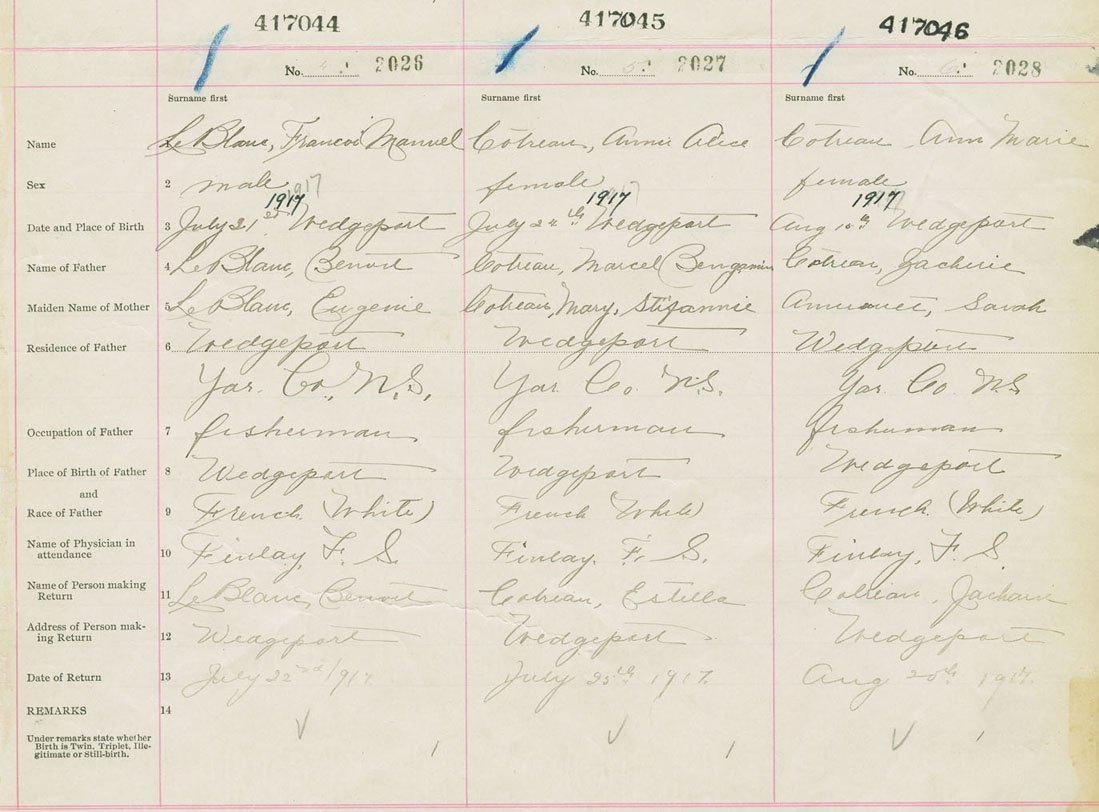 417044 417045 417046
No. 4 2026 No. 5 2027 No. 6 2028
Surname first Surname first Surname first
Name LeBlanc, Francois Manuel Cotreau, Annie Alice Cotreau, Ann Marie
Sex 2 male female female
1917 1917 1917 1917 1917
Date and Place of Birth 3 July 21 Wedgeport July 24th Wedgeport Aug 16th Wedgeport
Name of Father 4 LeBlanc, Benoit Cotreau, Marcel Bengamin Cotreau, Zacherie
Maiden Name of Mother 5 LeBlanc, Eugenie Cotreau, Mary, Stifannie Sarah
Residence of Father 6 Wedgeport Wedgeport Wedgeport
Yar. Co., N.S. Yar. Co. N.S. Yar. Co. N.S.
Occupation of Father 7 fisherman fisherman fisherman
Place of Birth of Father 8 Wedgeport Wedgeport Wedgeport
and
Race of Father 9 French (White) French (White) French. (White)
Name of Physician in
attendance 10 Finlay, F. S. Finlay. F. S. Finlay, F. S.
Name of Person making
Return 11 LeBlanc, Benoit Cotreau, Estella Cotreau, Zacharie
Address of Person mak-
ing Return 12 Wedgeport Wedgeport Wedgeport
Date of Return 13 July 22nd 1917. July 25th 1917. Aug 20th 1917.
REMARKS 14
Under remarks state whether
Birth is Twin, Triplet, Ille-
gitimate or Still-birth. 1 1 1